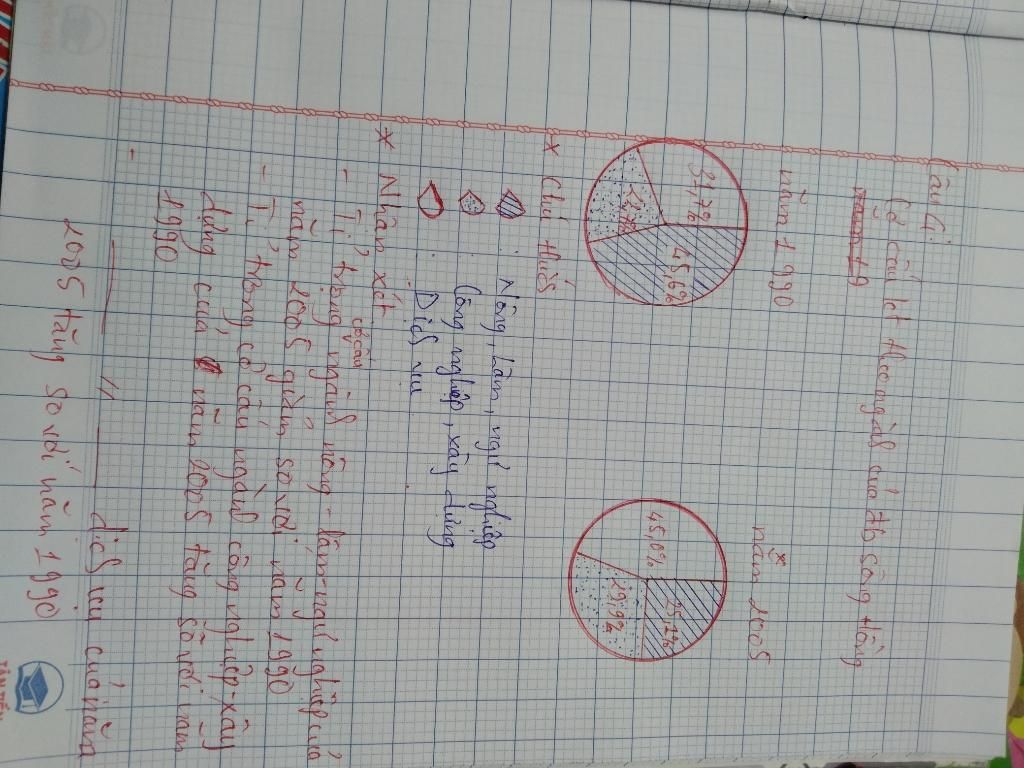 Câu 4:
Cơ cấu kt theo ngành của đb sông Hồng
năm 1990
năm 2005
31,7%
45,6%
22,7%
45,0%
25,2%
29,9%
* Chú thích
Nông, Lâm, ngư nghiệp
Công nghiệp, xây dựng
Dịch vụ
* Nhận xét
cơ cấu
- Tỉ trọng ngành nông-lâm-ngư nghiệp của
năm 2005 giảm so với năm 1990
- Tỉ trọng cơ cấu ngành công nghiệp-xây
dựng của năm 2005 tăng so với năm
1990
- __ // __ dịch vụ của năm
2005 tăng so với năm 1990